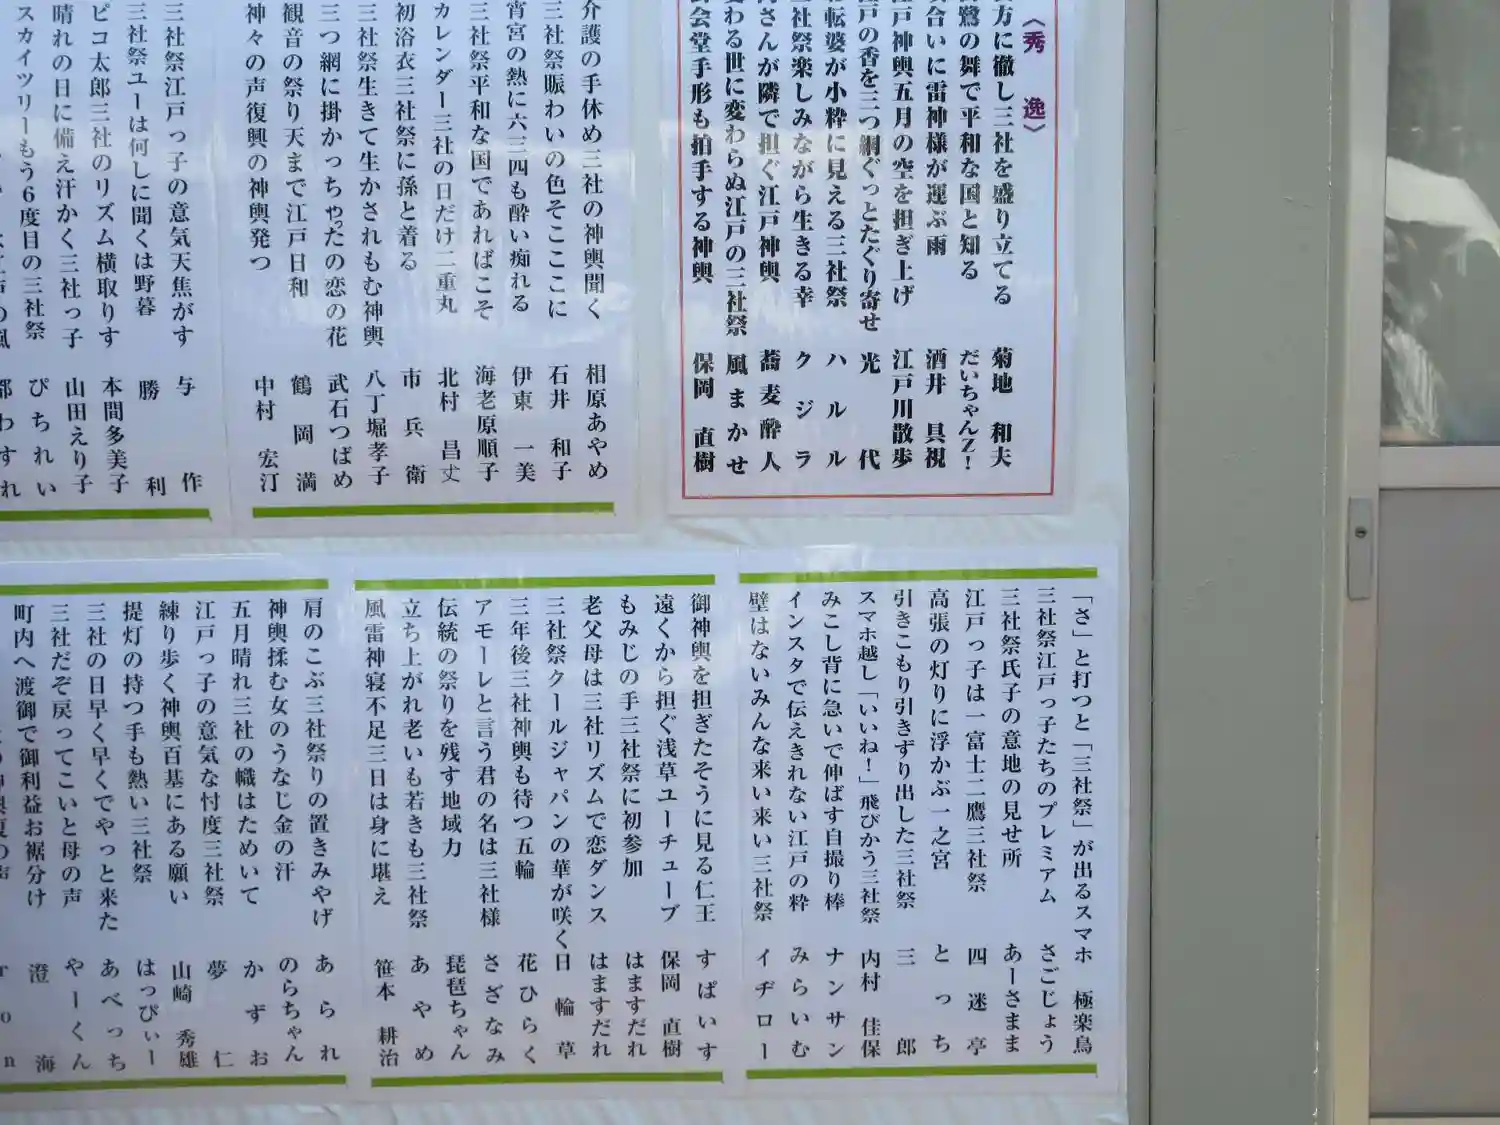 〈秀 逸〉
方に徹し三社を盛り立てる 菊地 和夫
鷺の舞で平和な国と知る だいちゃんZ!
合いに雷神様が運ぶ雨 酒井 具視
江戸神輿五月の空を担ぎ上げ 江戸川散歩
江戸の香を三つ綱ぐっとたぐり寄せ 光代
転婆が小粋に見える三社祭 ハルル
三社祭楽しみながら生きる幸 クジラ
さんが隣で担ぐ江戸神輿 蕎麦酔人
変わる世に変わらぬ江戸の三社祭 風まかせ
会堂手形も拍手する神輿 保岡 直樹
介護の手休め三社の神輿聞く 相原あやめ
三社祭賑わいの色そこここに 石井 和子
宵宮の熱に六三四も酔い痴れる 伊東 一美
三社祭平和な国であればこそ 海老原順子
カレンダー三社の日だけ二重丸 北村 昌丈
初浴衣三社祭に孫と着る 市兵衛
三社祭生きて生かされもむ神輿 八丁堀孝子
三つ網に掛かっちゃったの恋の花 武石つばめ
観音の祭り天まで江戸日和 鶴岡 満
神々の声復興の神輿発つ 中村 宏汀
三社祭江戸っ子の意気天焦がす 与作
三社祭ユーは何しに聞くは野暮 勝利
ピコ太郎三社のリズム横取りす 本間多美子
晴れの日に備え汗かく三社っ子 山田えり子
スカイツリーもう6度目の三社祭 ぴちれい
「さ」と打つと「三社祭」が出るスマホ 極楽鳥
三社祭江戸っ子たちのプレミアム さごじょう
三社祭氏子の意地の見せ所 あーさまま
江戸っ子は一富士二鷹三社祭 四迷亭
高張の灯りに浮かぶ一之宮 とっち
引きこもり引きずり出した三社祭 三郎
スマホ越し「いいね!」飛びかう三社祭 内村 佳保
みこし背に急いで伸ばす自撮り棒 ナンサン
インスタで伝えきれない江戸の粋 みらいむ
壁はないみんな来い来い三社祭 イヂロー
御神輿を担ぎたそうに見る仁王 すぱいす
遠くから担ぐ浅草ユーチューブ 保岡 直樹
もみじの手三社祭に初参加 はますだれ
老父母は三社リズムで恋ダンス はますだれ
三社祭クールジャパンの華が咲く 日輪草
三年後三社神輿も待つ五輪 花ひらく
アモーレと言う君の名は三社様 さざなみ
伝統の祭りを残す地域力 琵琶ちゃん
立ち上がれ老いも若きも三社祭 あやめ
風雷神寝不足三日は身に堪え 笹本 耕治
肩のこぶ三社祭りの置きみやげ あられ
神輿揉む女のうなじ金の汗 のらちゃん
五月晴れ三社の幟はためいて かずお
江戸っ子の意気な忖度三社祭 夢仁
練り歩く神輿百基にある願い 山崎 秀雄
提灯の持つ手も熱い三社祭 はっぴぃー
三社の日早く早くでやっと来た あべっち
三社だぞ戻ってこいと母の声 やーくん
町内へ渡御で御利益お裾分け 澄海